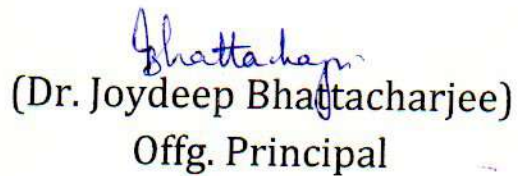 Bhattacharjee
(Dr. Joydeep Bhattacharjee)
Offg. Principal